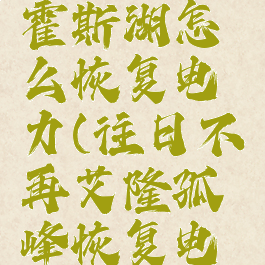 霍斯湖怎
么恢复电
力(往日不
再艾隆孤
峰恢复电